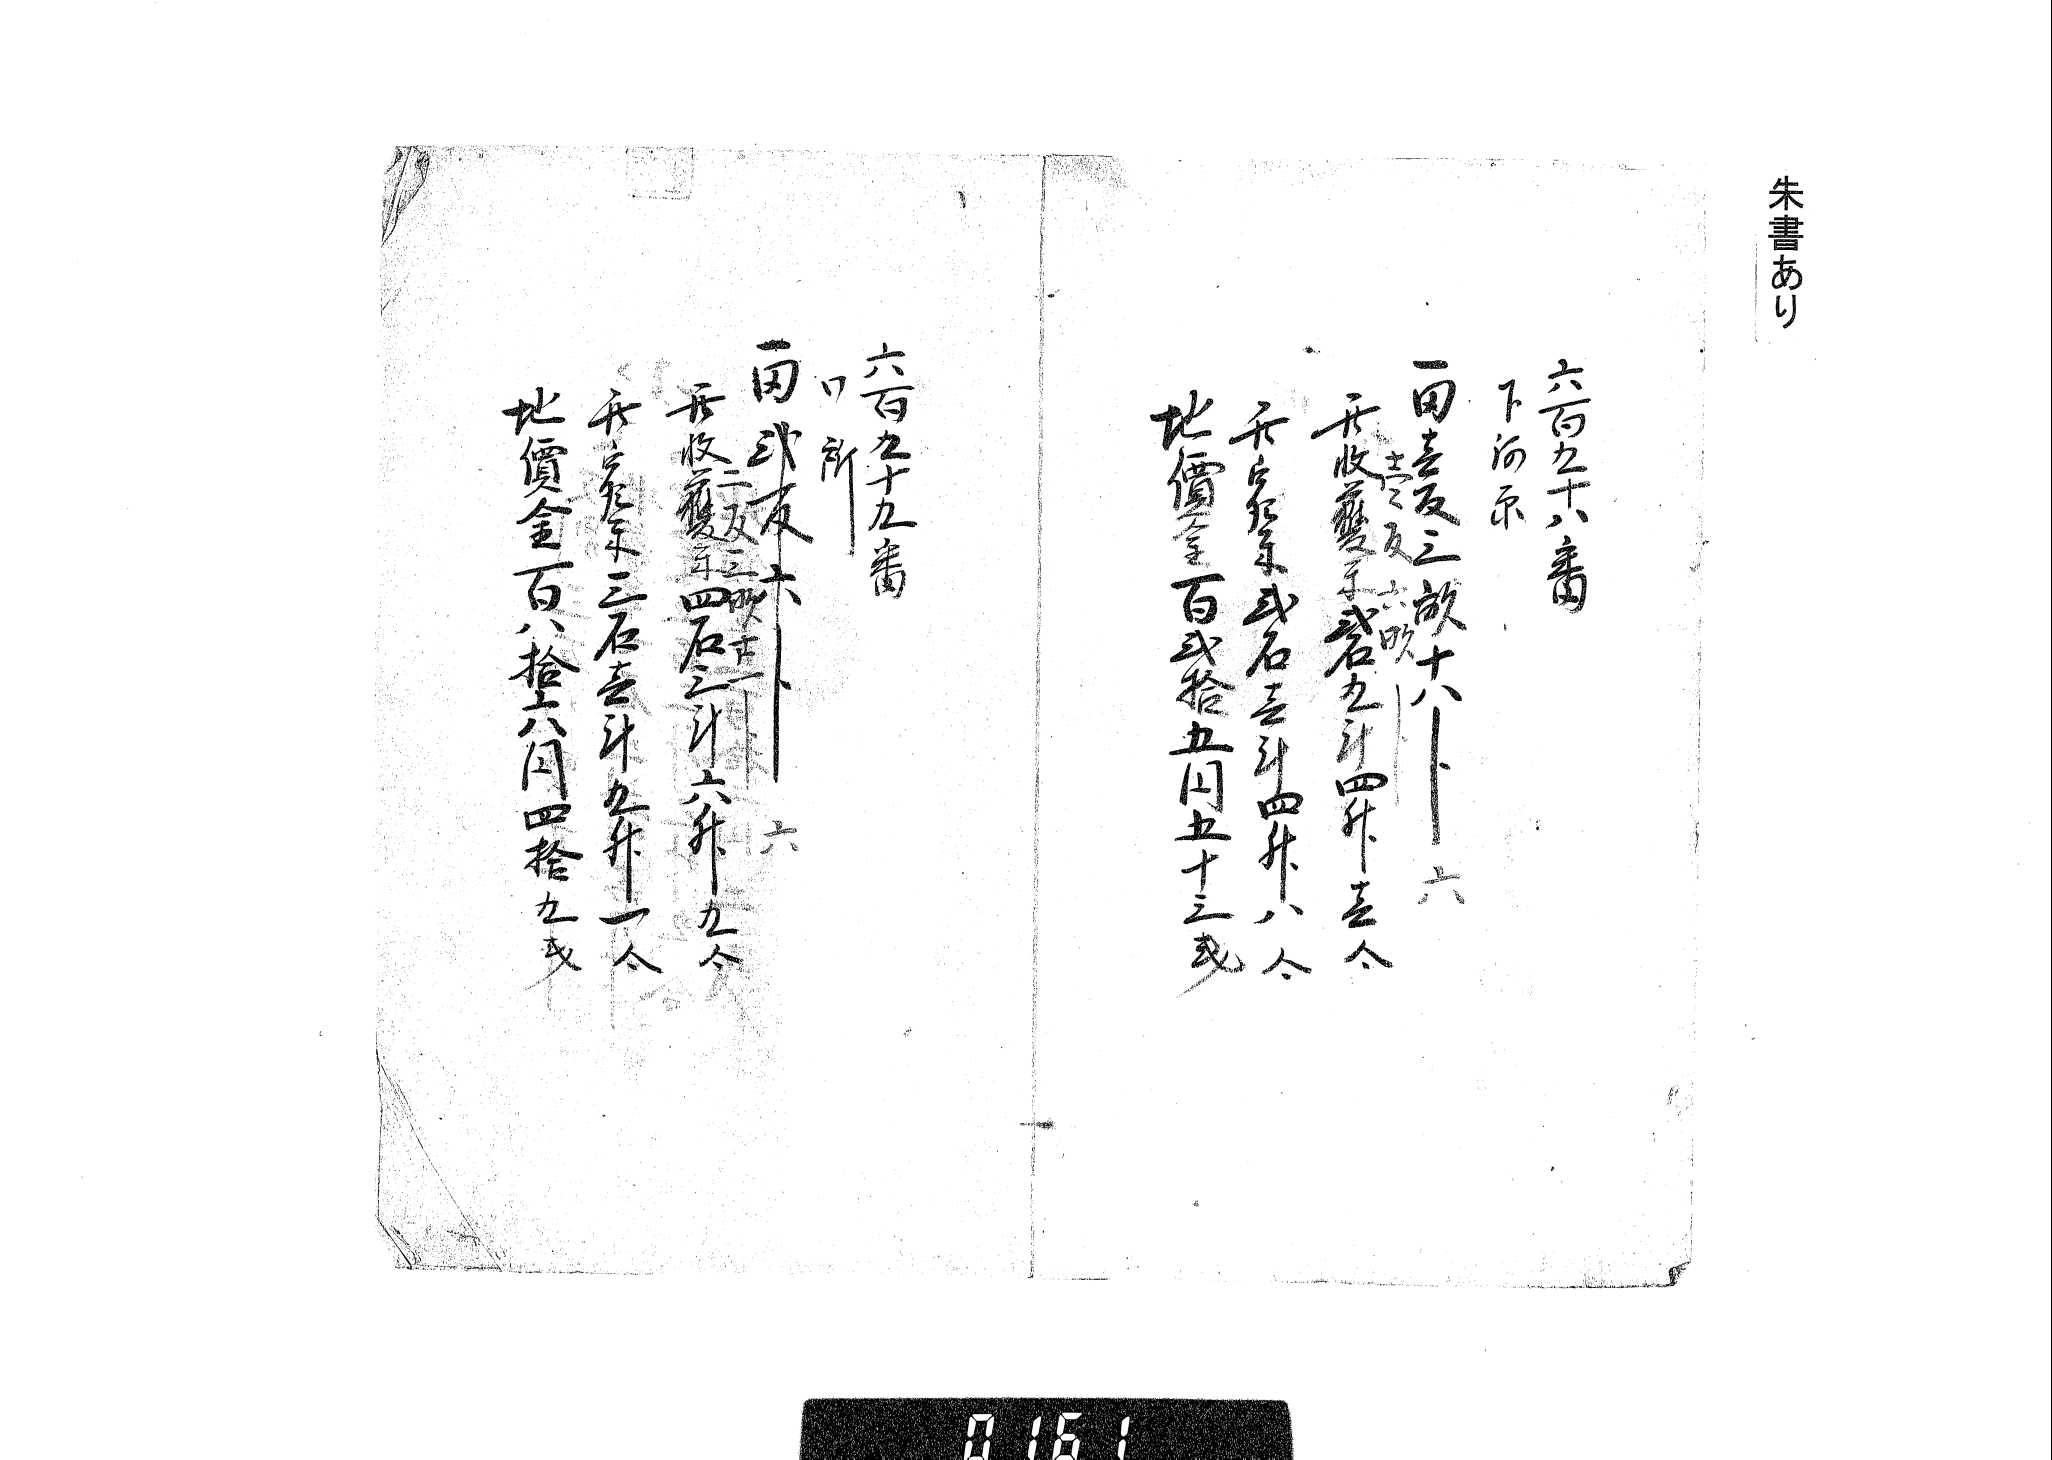 朱書あり
六百九十八番
下河原
一田壱反三畝十八歩 六
壱反六畝歩
此収穫米弐石九斗四升壱合
此定米弐石壱斗四升八合
地價金百弐拾五円五十三戋
六百九十九番
同所
一田弐反六歩 六
二反三畝十一歩
此収穫米四石三斗六升九合
此定米三石壱斗九升一合
地價金百八拾六円四拾九戋
0161